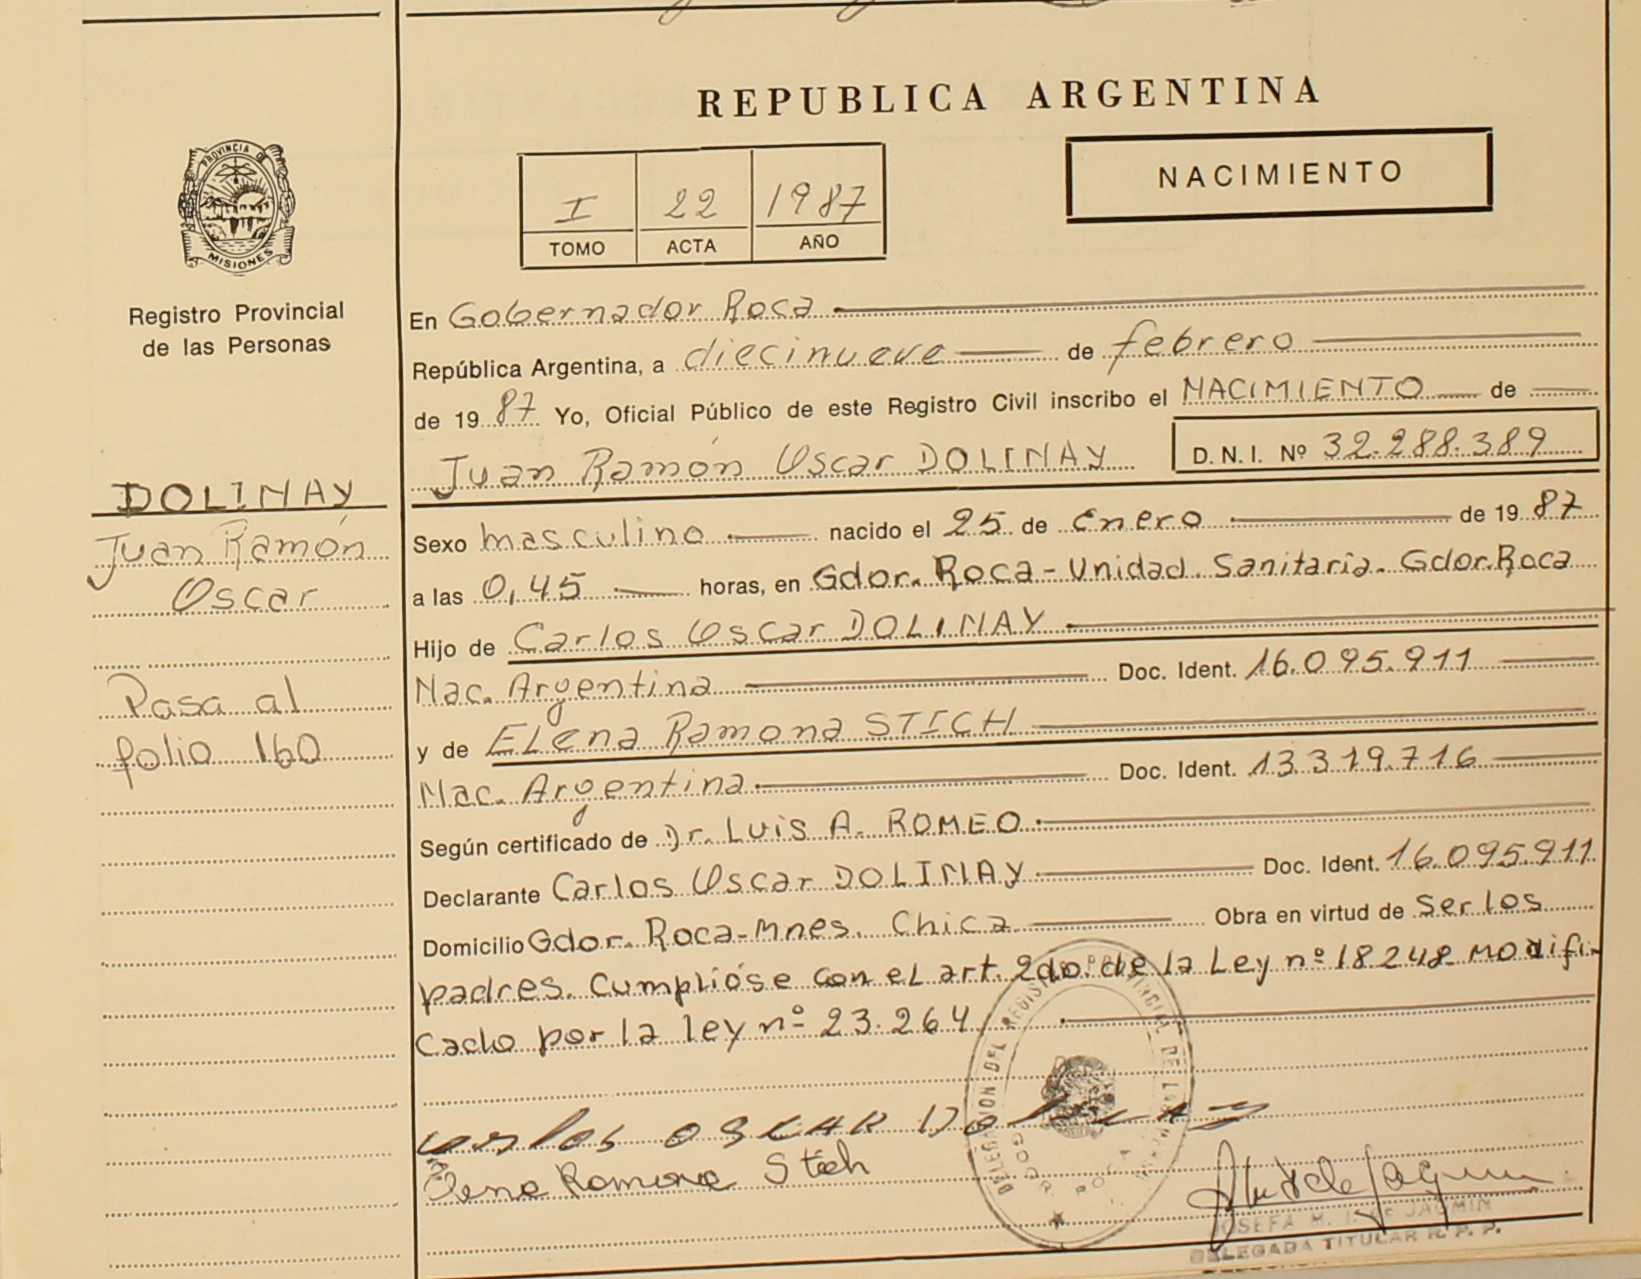 REPUBLICA ARGENTINA
PROVINCIA DE
MISIONES
Registro Provincial
de las Personas
I 22 1987
TOMO ACTA AÑO
NACIMIENTO
En Gobernador Roca
República Argentina, a diecinueve de febrero
de 1987 Yo, Oficial Público de este Registro Civil inscribo el NACIMIENTO de
Juan Ramón Oscar DOLINAY D. N. I. Nº 32.288.389
DOLINAY
Juan Ramón
Oscar
Pasa al
folio 160
Sexo masculino nacido el 25 de Enero de 1987
a las 0,45 horas, en Gdor. Roca - Unidad Sanitaria. Gdor. Roca
Hijo de Carlos Oscar DOLINAY
Nac. Argentina Doc. Ident. 16.095.911
y de ELena Ramona STICH
Nac. Argentina Doc. Ident. 13.319.716
Según certificado de Dr. Luis A. ROMEO
Declarante Carlos Oscar DOLINAY Doc. Ident. 16.095.911
Domicilio Gdor. Roca-Mnes. Chica Obra en virtud de Ser los
padres. Cumplióse con el art. 2do. de la Ley nº 18248 modifi-
cado por la ley nº 23.264
Carlos OSCAR Dolinay
Elena Ramona Stich
DELEGACION DEL REGISTRO PROVINCIAL DE LAS
GDOR. ROCA
JOSEFA M. DE JACMIN
DELEGADA TITULAR R. P. P.